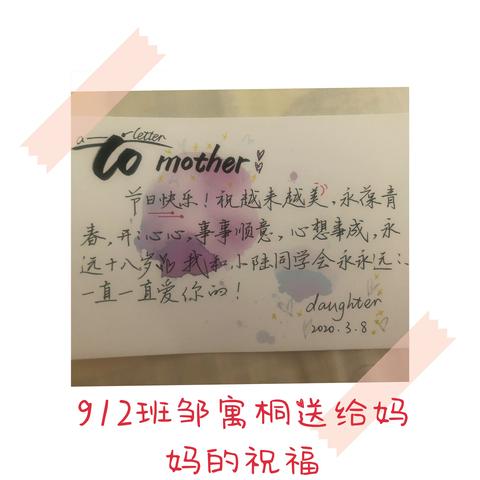 a letter
To mother
节日快乐！祝越来越美，永葆青
春，开开心心，事事顺意，心想事成，永
远十八岁。我和小陆同学会永永远远
一直一直爱你的！
daughter
2020.3.8
912班邹寓桐送给妈
妈的祝福